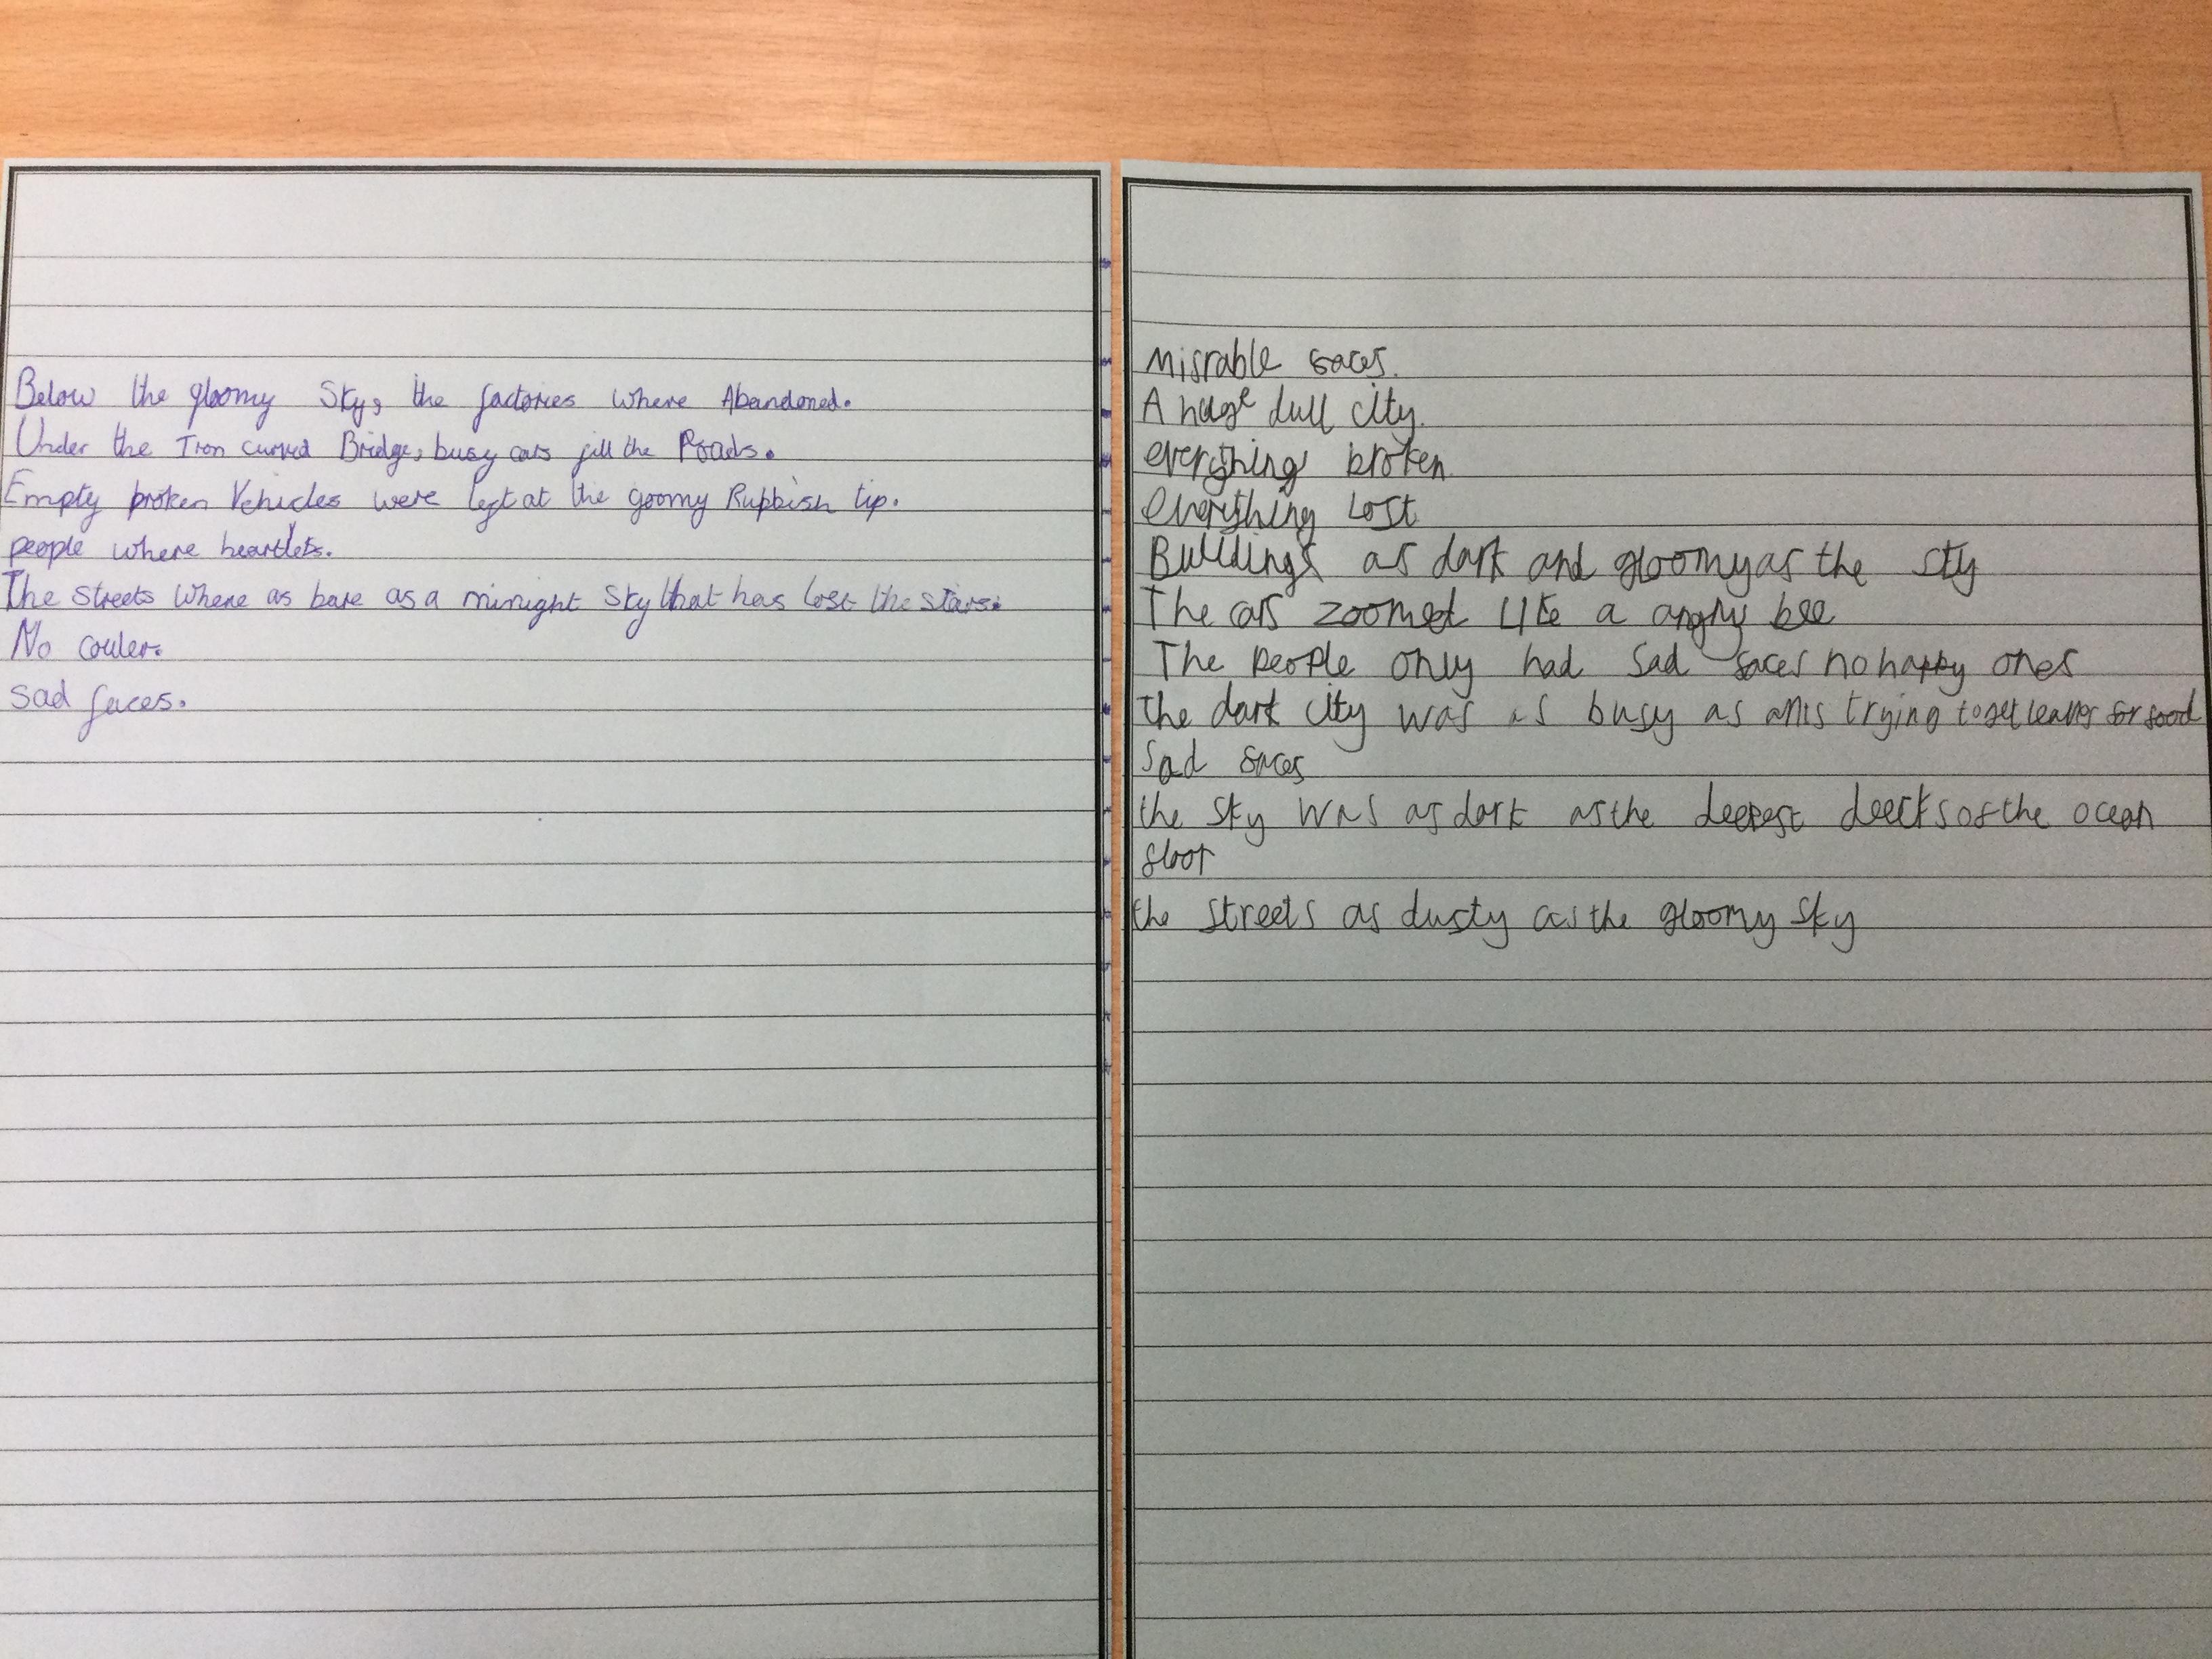 Below the gloomy Sky, the factories where Abandoned.
Under the Iron curved Bridge, busy cars fill the Roads.
Empty broken Vehicles were left at the goomy Rubbish tip.
people where heartlets.
The Streets where as bare as a minight Sky that has lost the stars.
No couler.
Sad faces.
Misrable faces.
A huge dull city.
everything broken.
everything Lost
Buildings as dark and gloomy as the sky
The cars zoomed like a angry bee
The people only had sad faces no happy ones
the dark city was as busy as ants trying to get leaves for food
Sad faces
the sky was as dark as the deepest of the ocean
floor
the streets as dusty as the gloomy sky